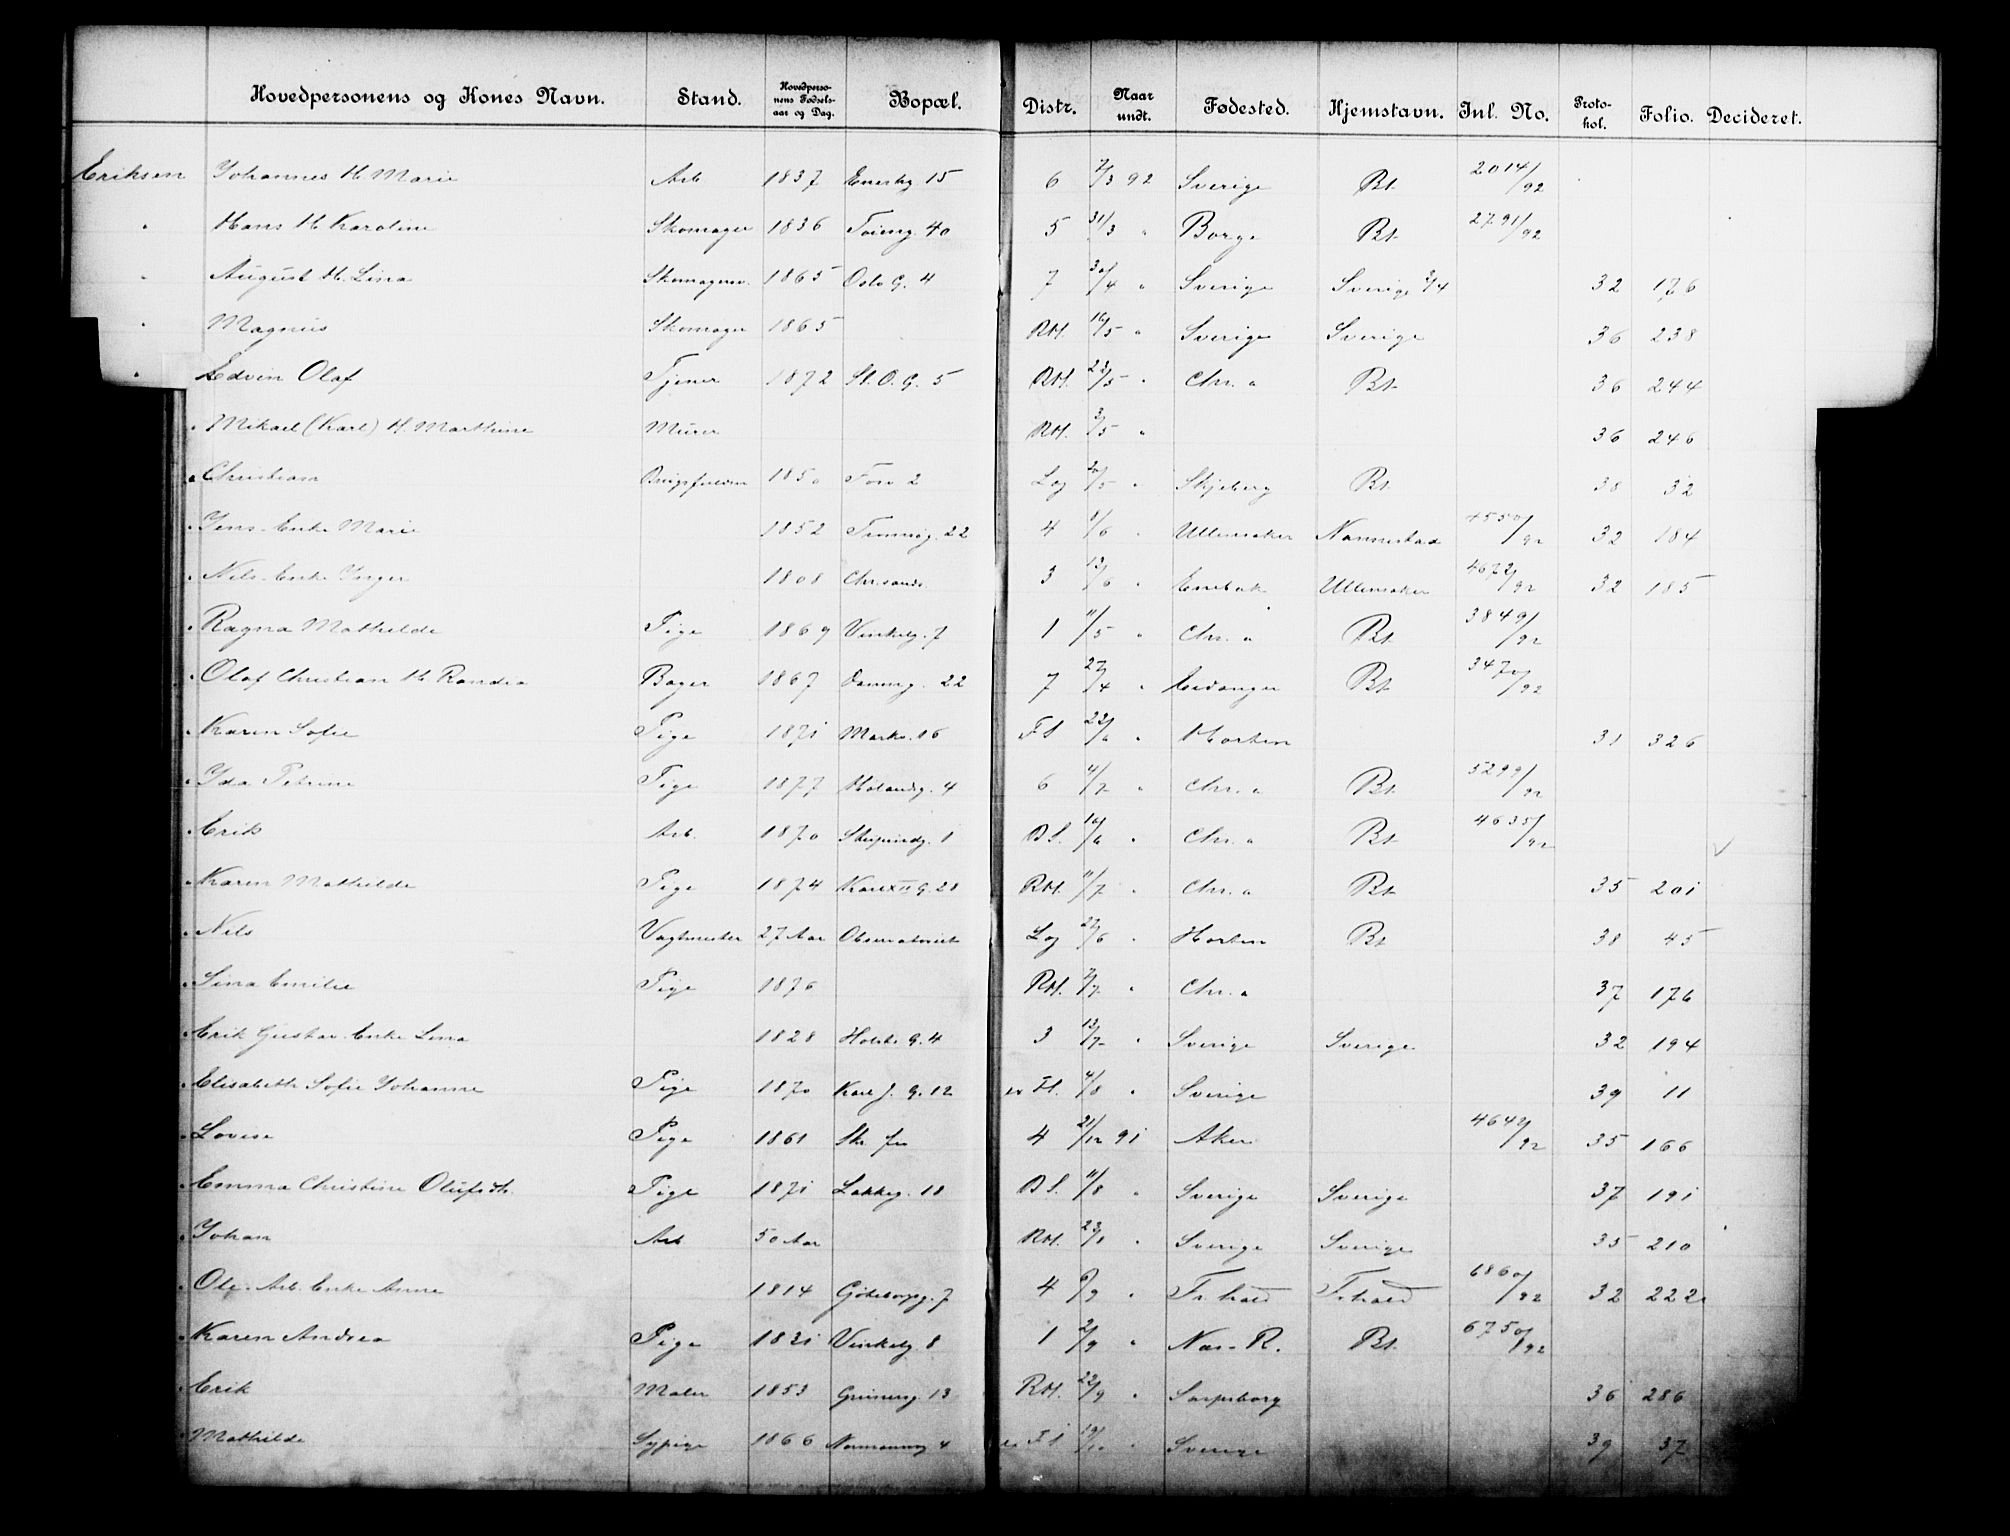 Hovedpersonens og Kones Navn. Stand. Hovedperso-nens Fødsels-aar og Dag. Bopæl. Distr. Naar undt. Fødested. Hjemstavn. Inl. No. Proto-kol. Folio. Decideret.
Eriksen Johannes H. Marie Arb 1837 Enerhg 15 6 2/3 92 Sverige Bt. 2014/92
" Hans H. Karoline Skomager 1836 Toieng 40 5 31/3 " Borge Bt. 2791/92
" August H. Lina Skomagersv. 1865 Oslo G. 4 7 30/4 " Sverige Sverige 2/4 32 176
" Magnus Skomager 1865 RH. 16/5 " Sverige Sverige 36 238
" Edvin Olaf Tjener 1872 St. O. G. 5 RH. 23/5 " Chr. a Bt. 36 244
" Mikael (Karl) H. Marthine Murer RH. 3/5 " 36 246
" Christian 1850 Foso 2 Lg /5 " Skjeberg Bt. 38 32
" Jens. Enke Marie 1852 Tromsøg. 22 4 1/6 " Ullensaker Nannestad 4550/92 32 184
" Nils. Enke Inger 1808 Chr.sands. 3 13/6 " Enebak Ullensaker 4672/92 32 185
" Ragna Mathilde Pige 1869 Vinkelg. 7 1 11/5 " Chr. a Bt. 3849/92
" Olaf Christian H. Randea Bager 1867 22 7 27/4 " Levanger Bt. 3470/92
" Karen Sofie Pige 1871 Markv. 16 Fl 22/6 " Horten 31 326
" Ida Petrine Pige 1877 Hølandsg. 4 6 4/7 " Chr. a Bt. 5299/92
" Erik Arb. 1870 1 B S. 16/6 " Chr. a Bt. 4635/92
" Karen Mathilde Pige 1874 Karl XII G. 28 RH. 11/7 " Chr. a Bt. 35 201
" Nils Vagtmester 27 Aar Observatoriet Lg 27/6 " Horten Bt 38 45
" Lina Emilie Pige 1876 RH. 7/7 " Chr. a 37 176
" Erik Gustav. Enke Lina 1828 Holst. G. 4 3 13/7 " Sverige Sverige 32 194
" Elisabeth Sofie Johanne Pige 1870 Karl J. G. 12 Fl. 4/8 " Sverige 39 11
" Lovise Pige 1861 4 21/12 91 Aker 4642/92 35 166
" Emma Christine Olufsdt. Pige 1871 Lakkeg. 18 B S. 11/8 " Sverige Sverige 37 191
" Johan Arb 50 Aar RH. 23/8 " Sverige Sverige 35 210
" Ole. Arb. Enke Anne 1814 Göteborgg. 7 4 6/9 " Fr.hald Fr.hald 6860/92 32 222
" Karen Andrea Pige 1821 Vinkelg 8 1 2/9 " Næs. R. Bt. 6750/92
" Erik Maler 1853 Grünerg 13 RH. 22/9 " Sarpsborg 36 286
" Mathilde Sypige 1866 Normannsg 4 Fl 19/10 " Sverige 39 37